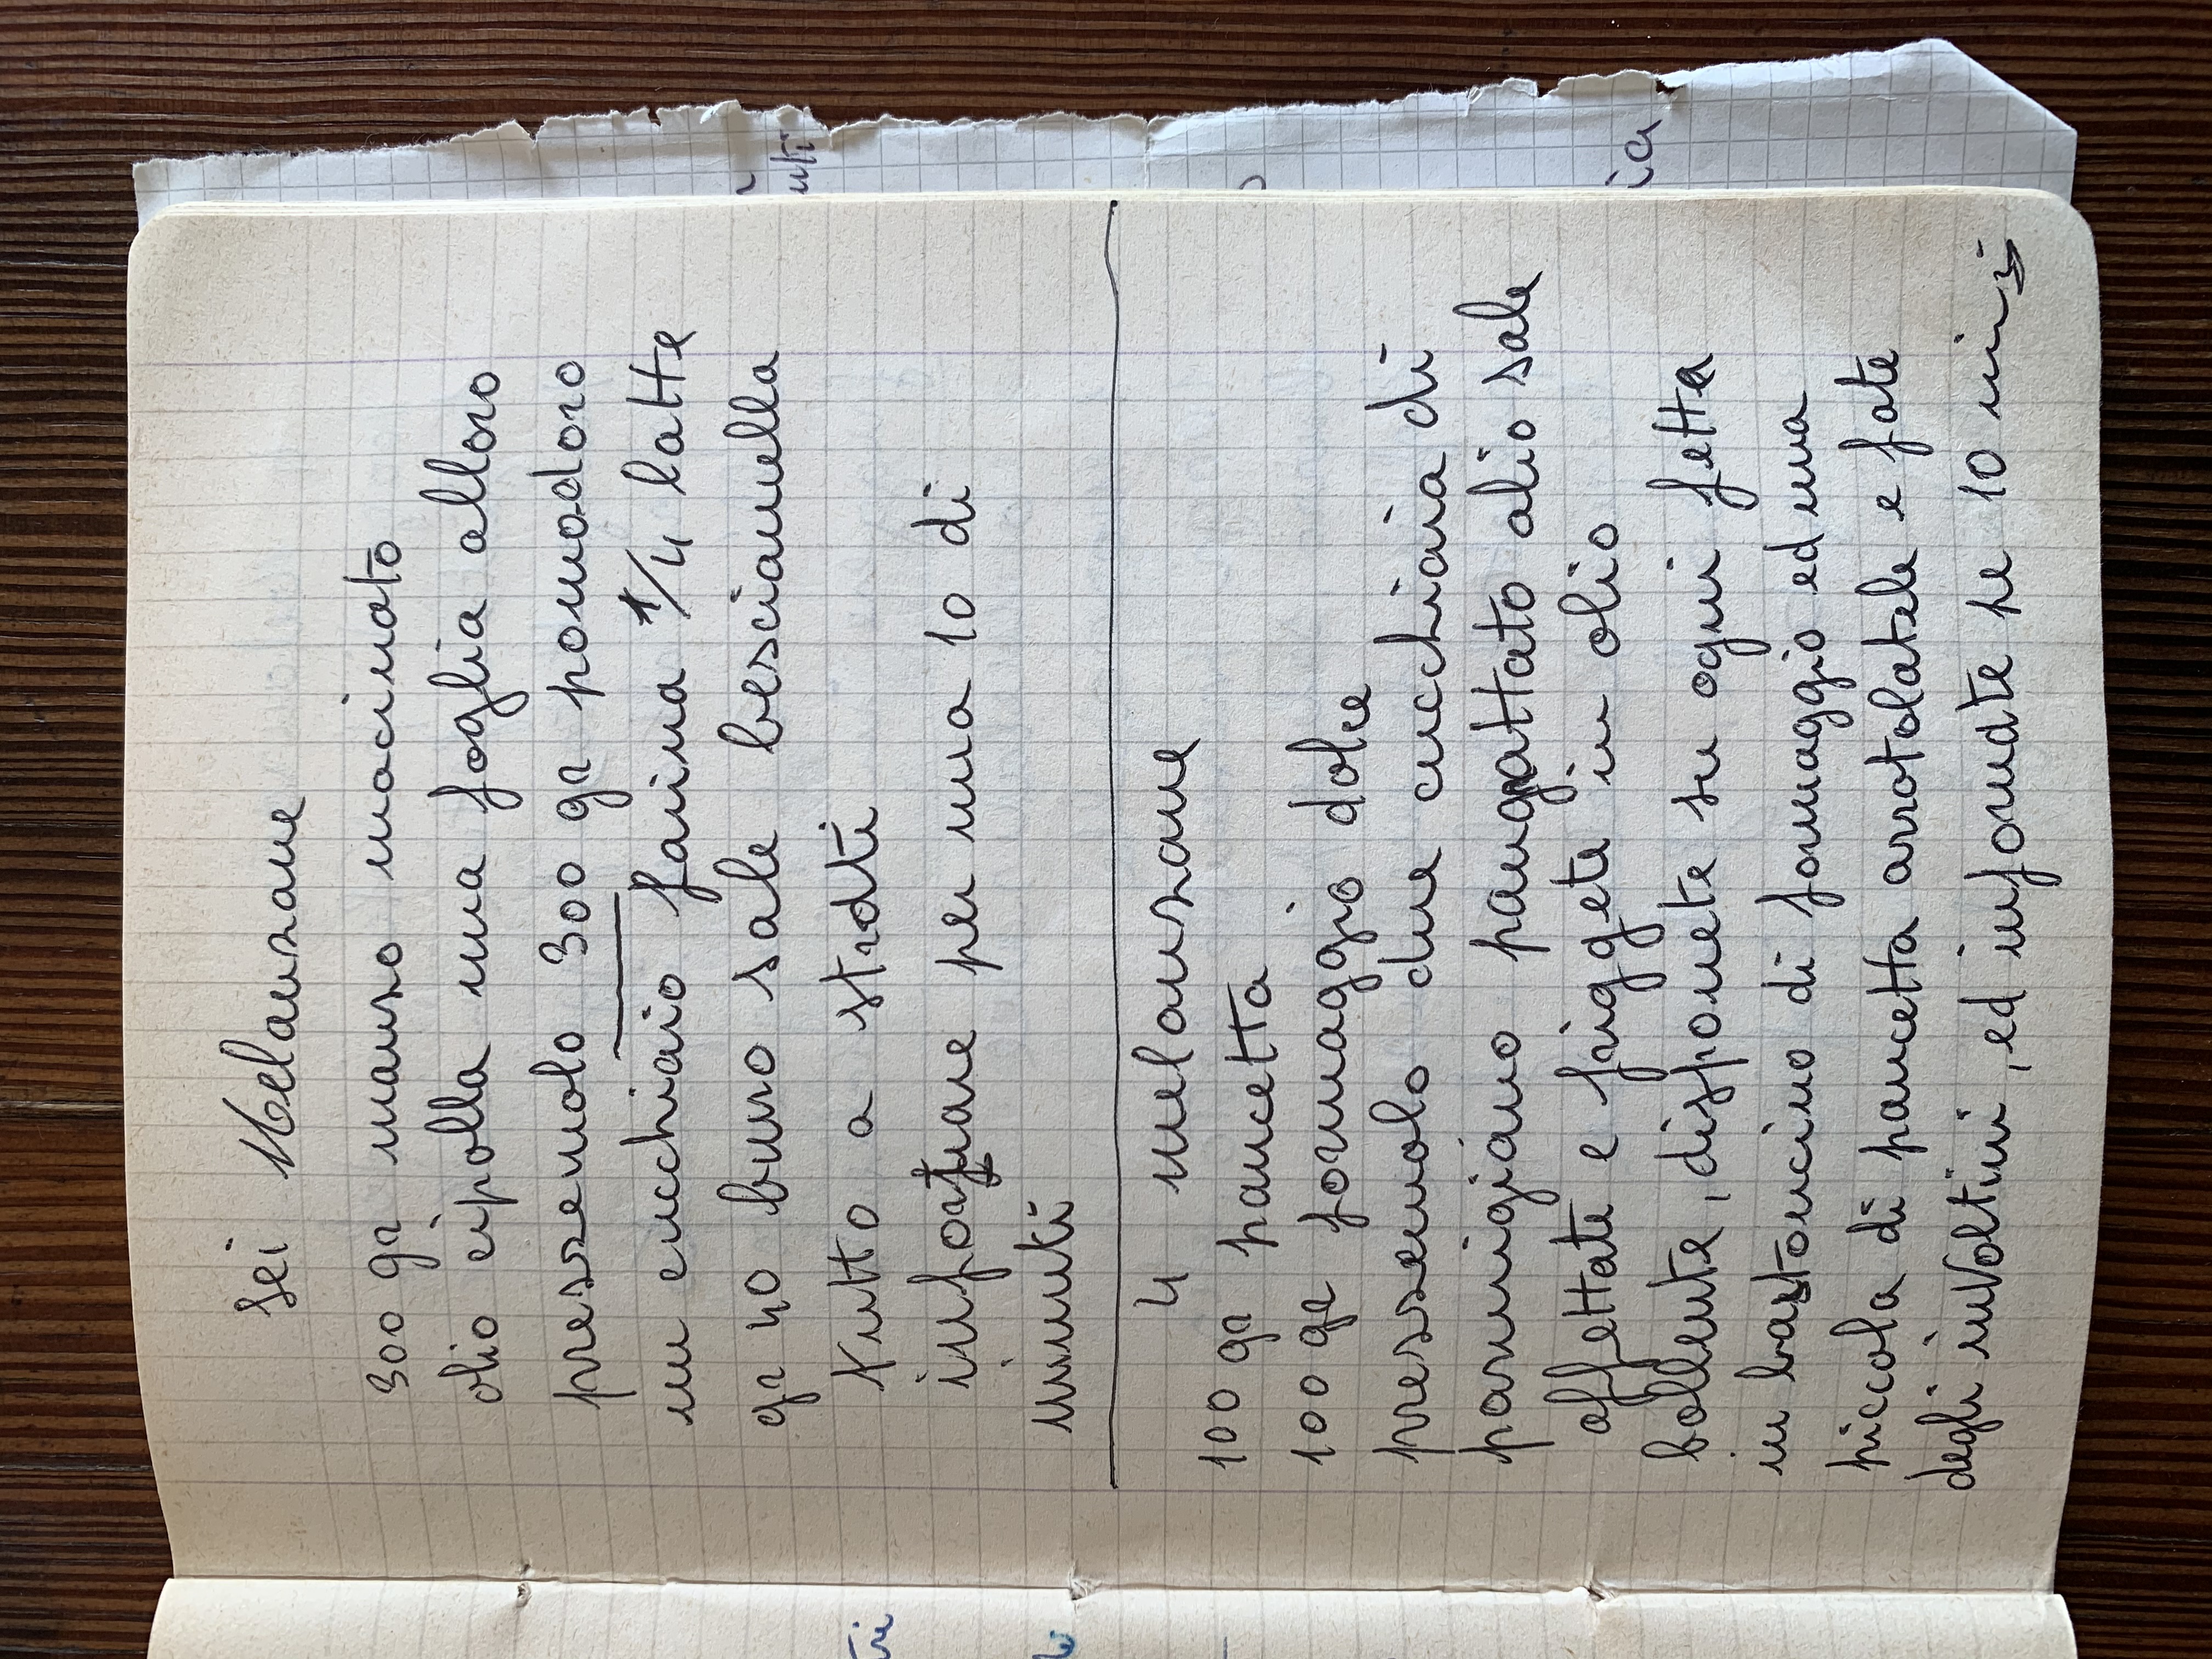 sei Melanzane
300 gr manzo macinato
olio cipolla una foglia alloro
prezzemolo 300 gr pomodoro
un cucchiaio farina 1/4 latte
gr 40 burro sale besciamella
tutto a strati
per una 10 di
minuti
4 melanzane
100 gr pancetta
100 gr formaggio dolce
prezzemolo due cucchiaia di
parmigiano pangrattato olio sale
affettate e friggete in olio
bollente, disponete su ogni fetta
in bastoncino di formaggio ed una
piccola di pancetta arrotolatele e fate
degli involtini, ed infornate pe 10
tri
uti
ia